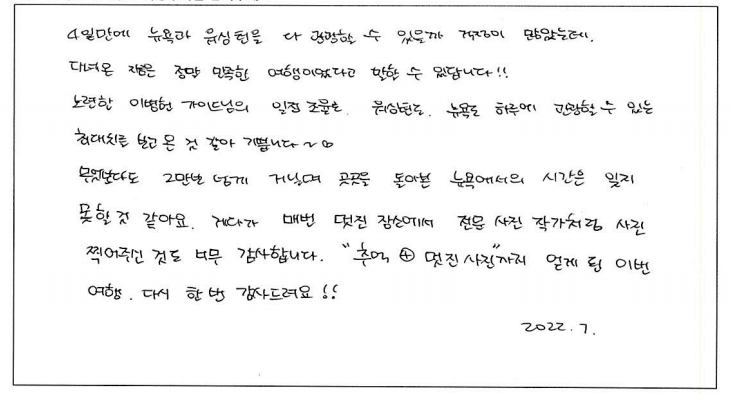 4일만에 뉴욕과 워싱턴을 다 관광할 수 있을까 걱정이 많았는데.
다녀온 지금은 정말 만족한 여행이었다고 말할 수 있답니다!!
노련한 이병헌 가이드님의 일정 조율로. 워싱턴도. 뉴욕도 하루에 관광할 수 있는
최대치를 보고 온 것 같아 기쁩니다~♡
무엇보다도 2만보 넘게 거닐며 곳곳을 돌아본 뉴욕에서의 시간은 잊지
못할 것 같아요. 게다가 매번 멋진 장소에서 전문 사진 작가처럼 사진
찍어주신 것도 너무 감사합니다. "추억 ⊕ 멋진 사진"까지 얻게 된 이번
여행. 다시 한 번 감사드려요!!
2022. 7.